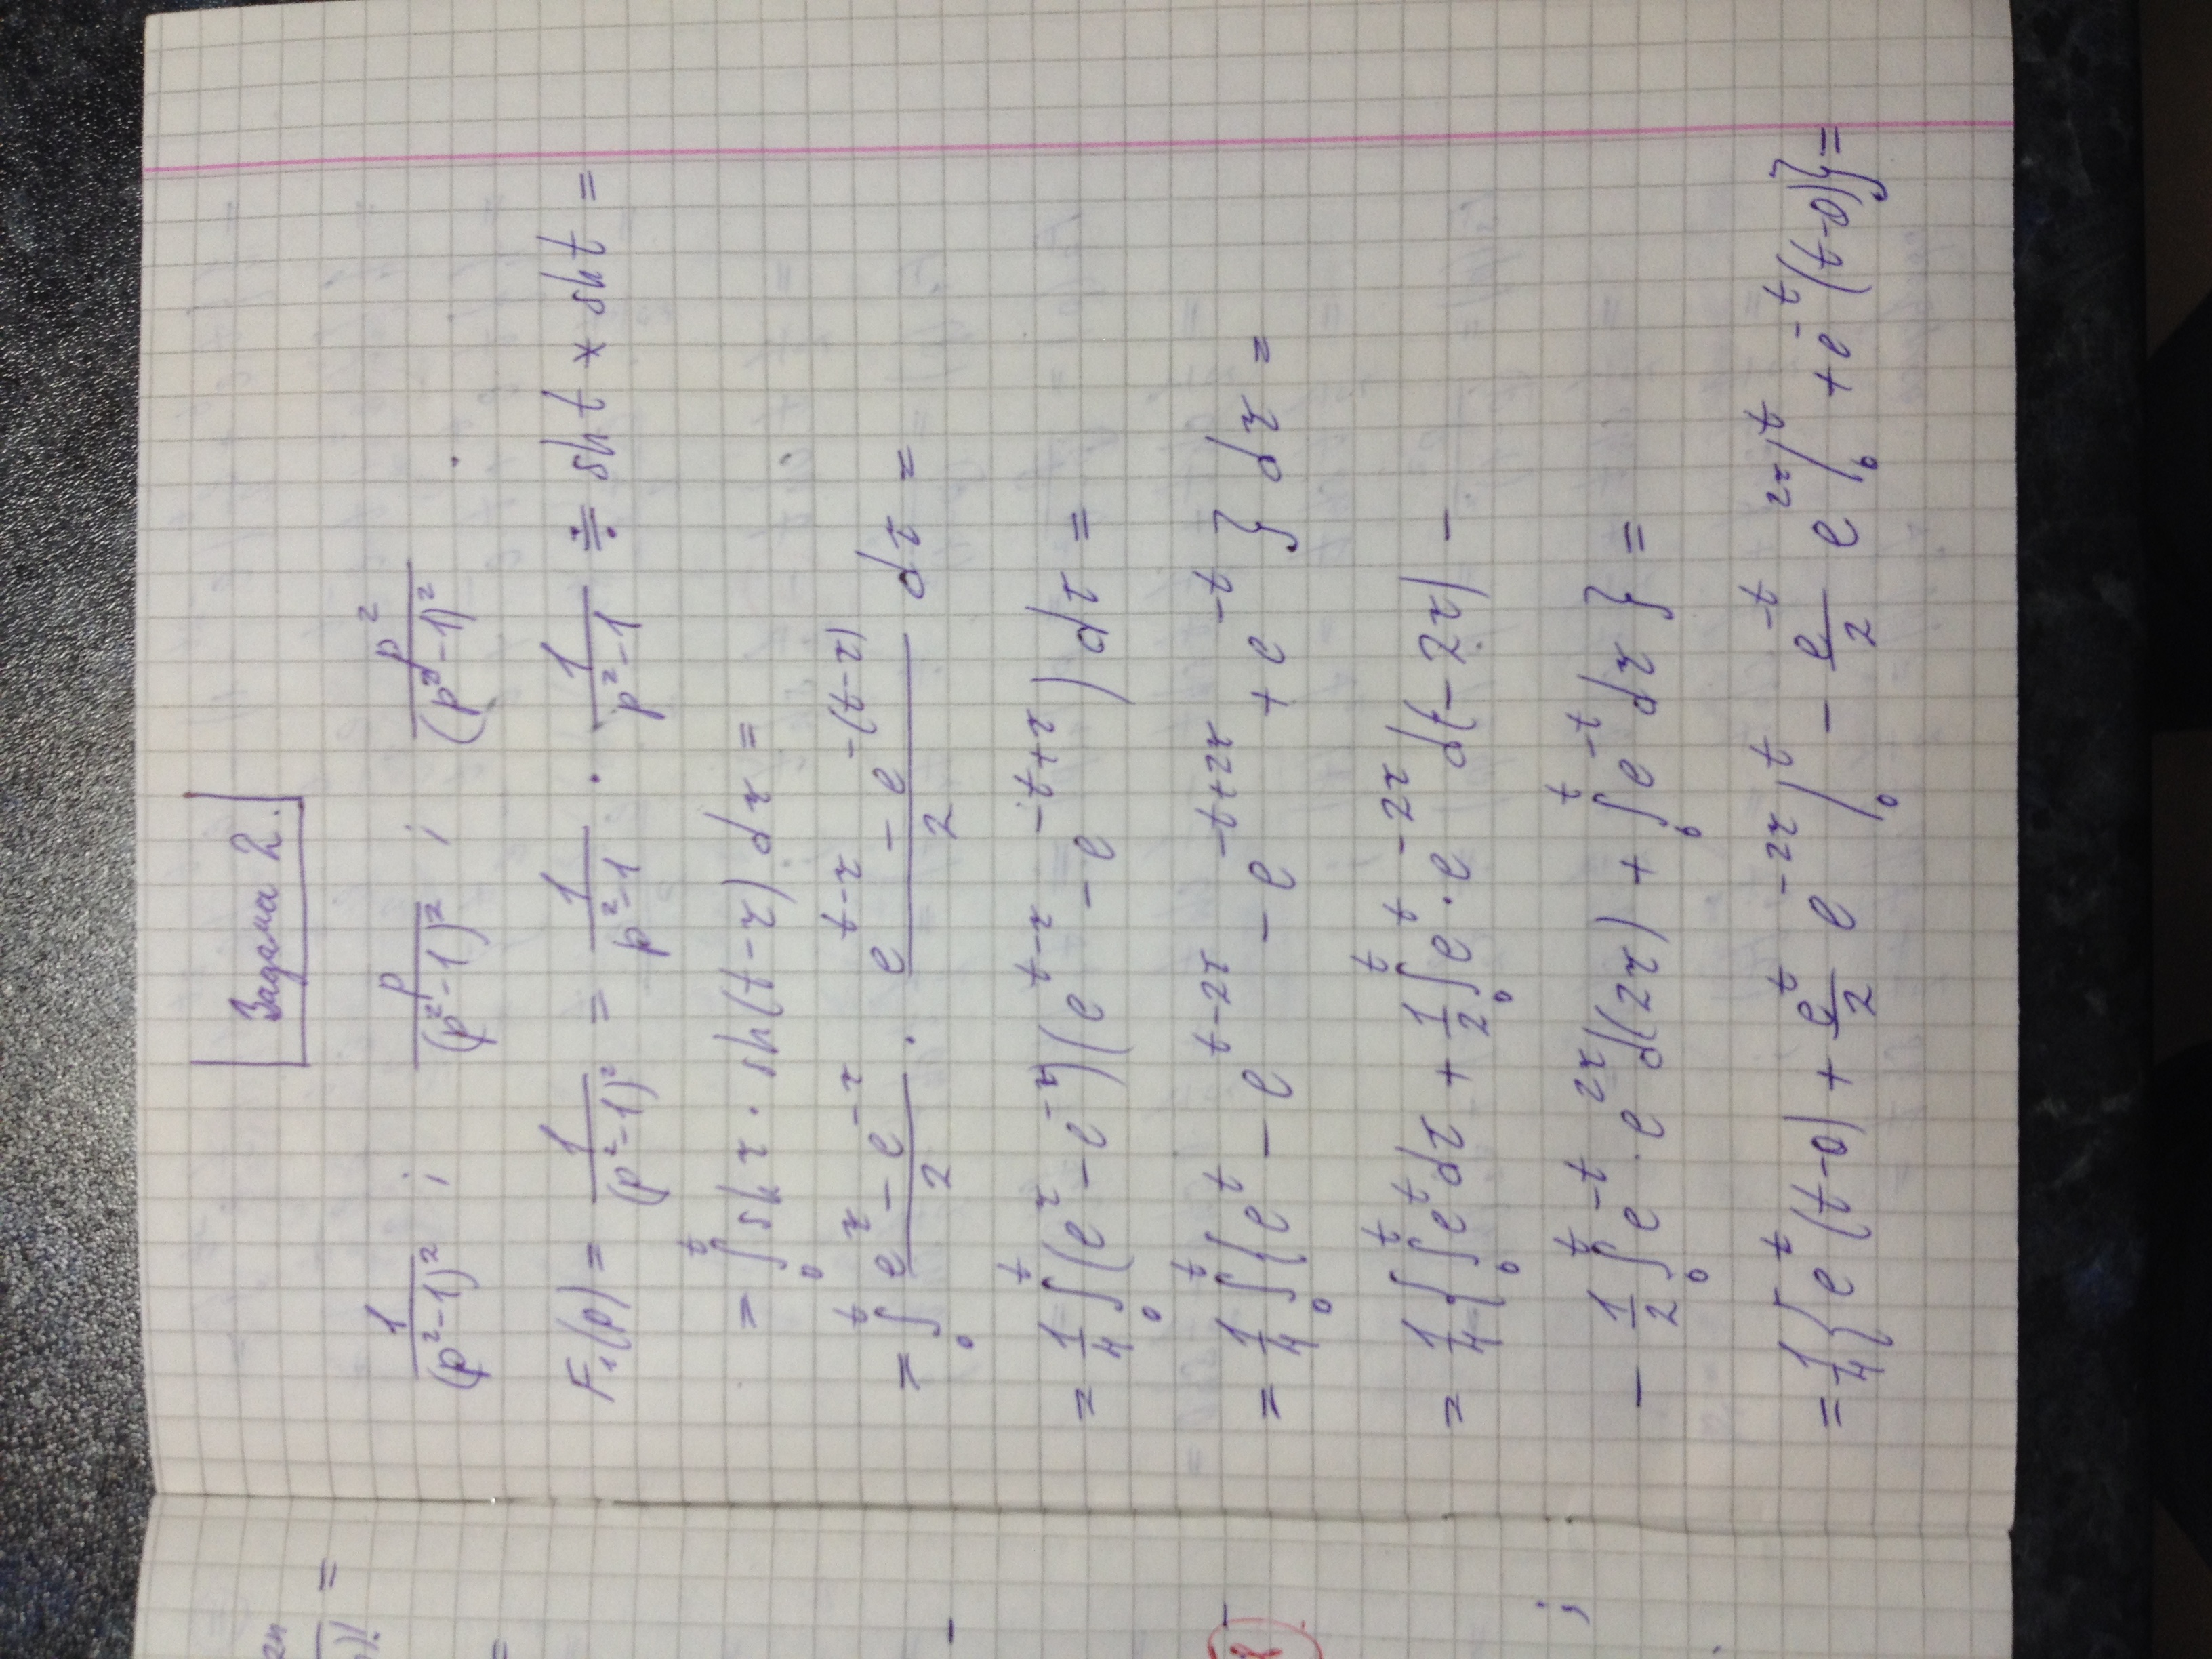 Задача 2.
1/(p²-1)² ; p/(p²-1)² ; p²/(p²-1)² .
F₁(p) = 1/(p²-1)² = 1/(p²-1) · 1/(p²-1) ≑ sht * sht =
= ∫₀ᵗ sh τ · sh(t-τ) dτ =
= ∫₀ᵗ (e^τ - e^(-τ))/2 · (e^(t-τ) - e^(-(t-τ)))/2 dτ =
= 1/4 ∫₀ᵗ (e^τ - e^(-τ))(e^(t-τ) - e^(-t+τ)) dτ =
= 1/4 ∫₀ᵗ {e^t - e^(t-2τ) - e^(-t+2τ) + e^(-t)} dτ =
= 1/4 {∫₀ᵗ e^t dτ + 1/2 ∫₀ᵗ e^t · e^(-2τ) d(-2τ) -
- 1/2 ∫₀ᵗ e^(-t) · e^(2τ) d(2τ) + ∫₀ᵗ e^(-t) dτ} =
= 1/4 {e^t (t-0) + e^t/2 e^(-2τ) |₀ᵗ - e^(-t)/2 e^(2τ) |₀ᵗ + e^(-t) (t-0)} =
=
=
;